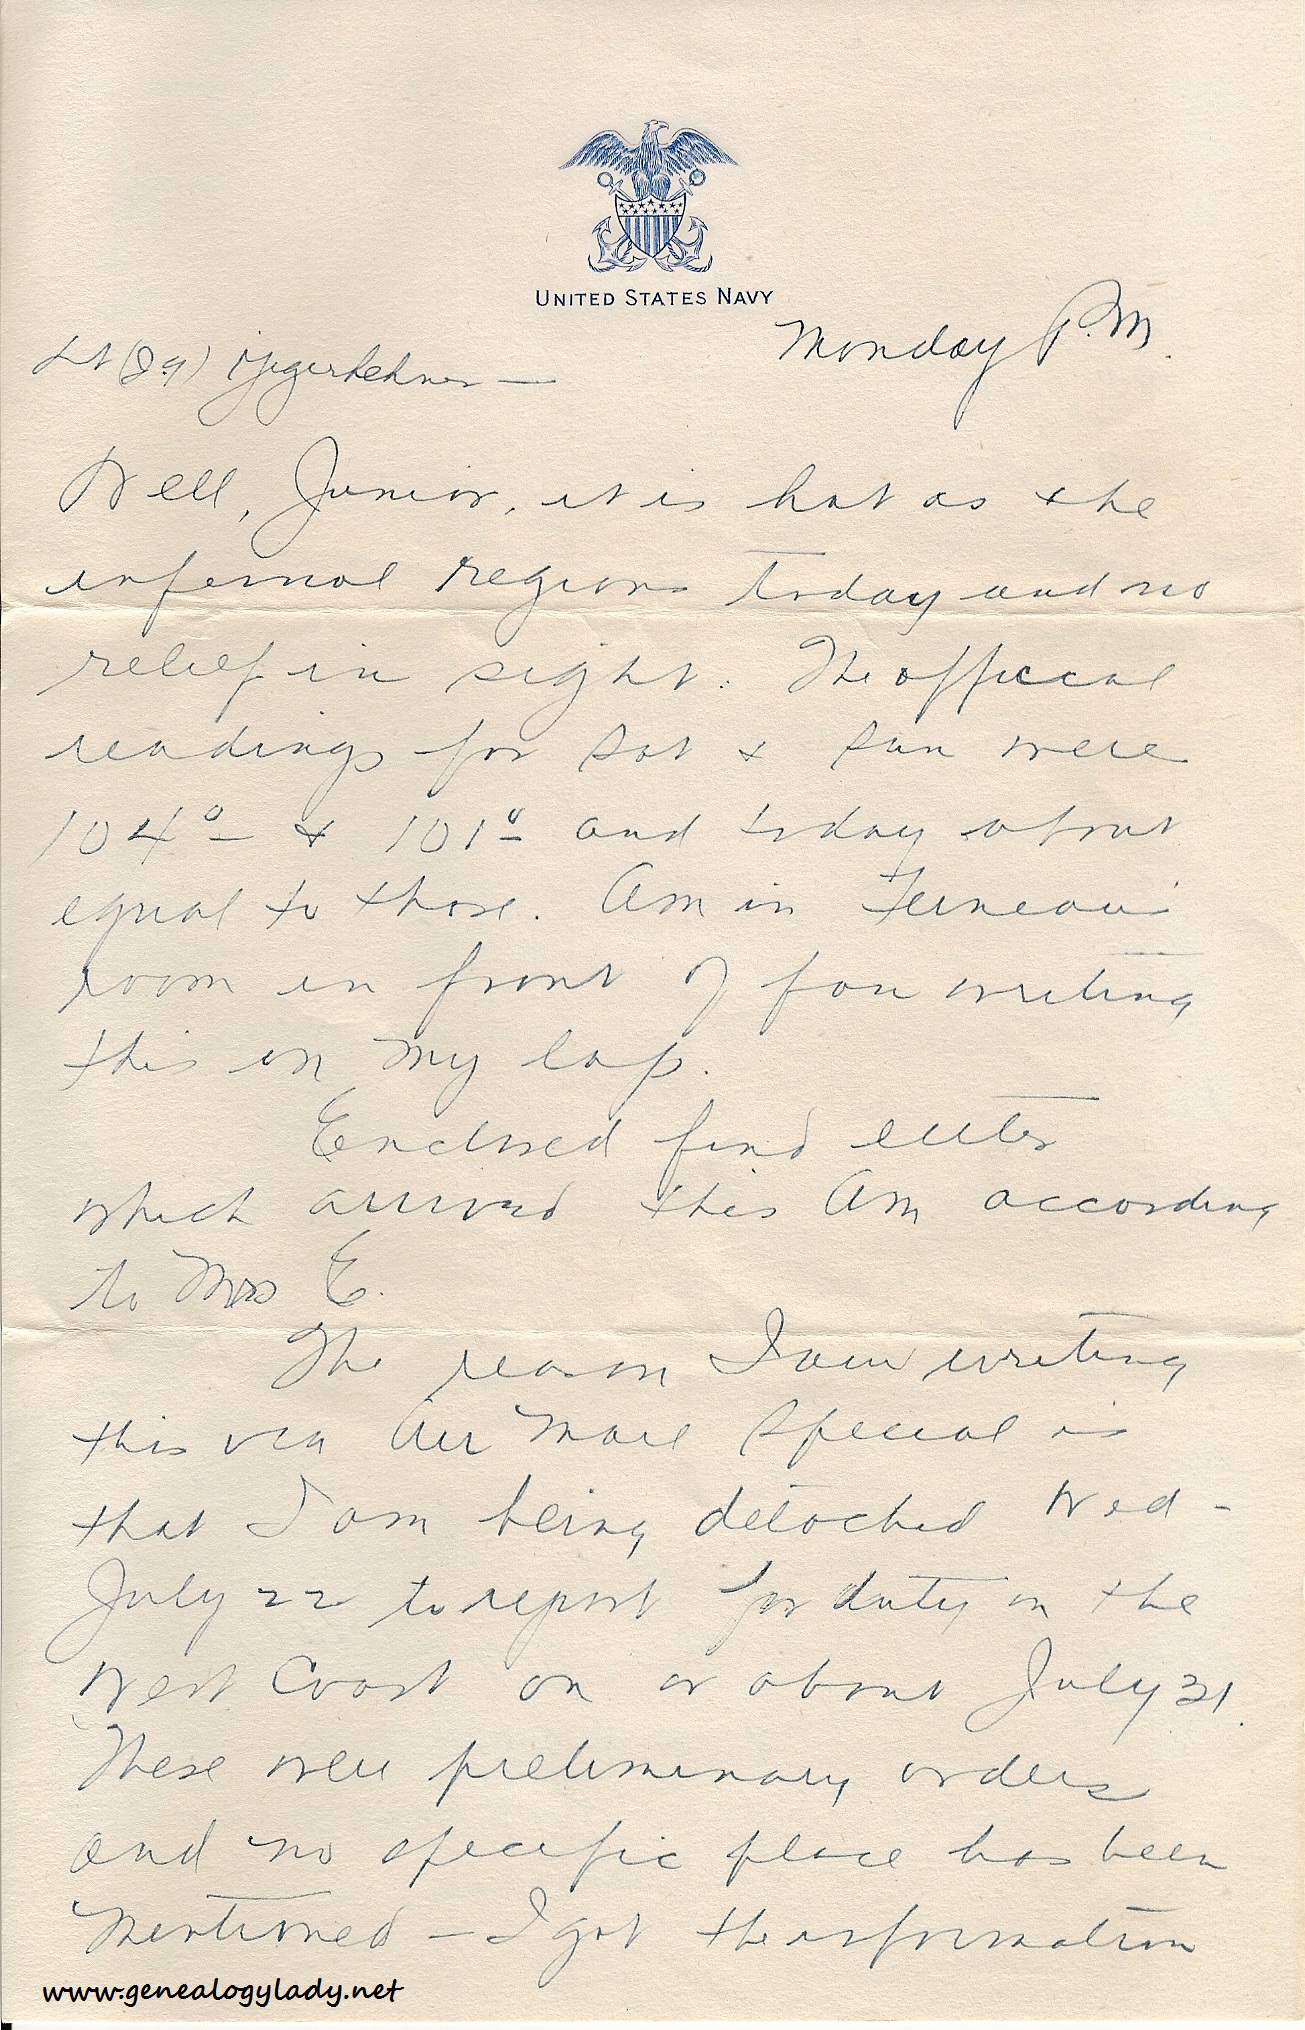 UNITED STATES NAVY
Monday P.M.
Lt (J.g)
Well, Junior, it is hot as the
infernal regions today and no
relief in sight. The official
readings for Sat & Sun were
104° & 101° and today about
equal to those. Am in Ferneau's
room in front of fan writing
this on my lap.
Enclosed find letter
which arrived this AM according
to Mrs E.
The reason I am writing
this via Air Mail Special is
that I am being detached Wed-
July 22 to report for duty on the
West Coast on or about July 31.
These were preliminary orders
and no specific place has been
mentioned — I got the information
www.genealogylady.net